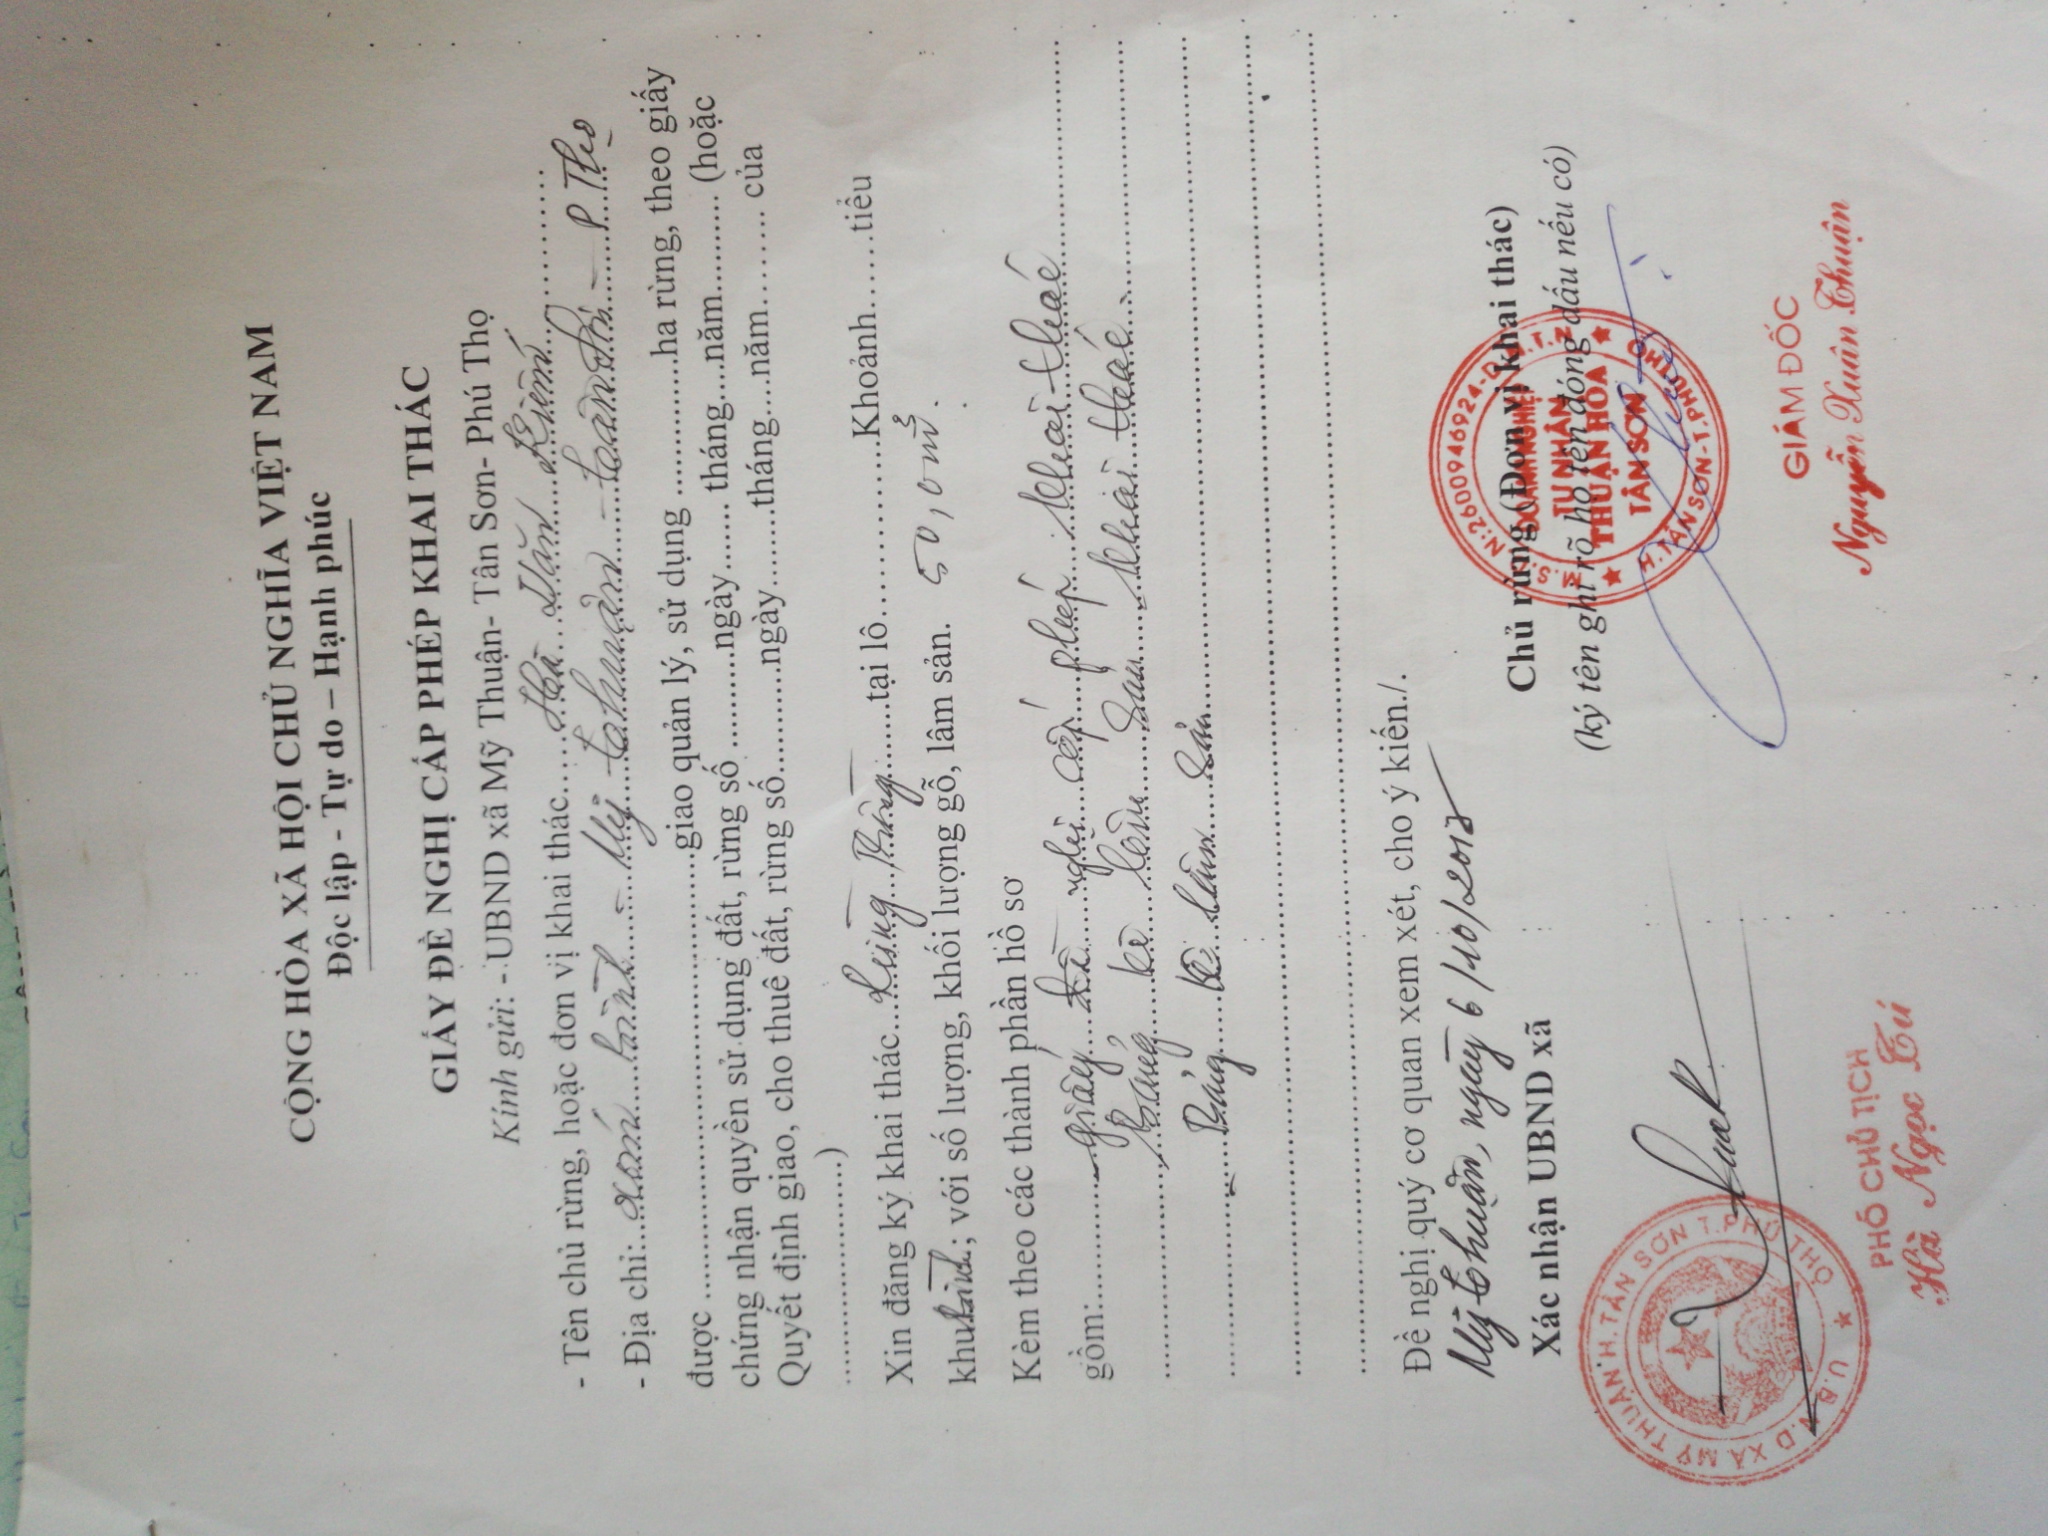 CỘNG HÒA XÃ HỘI CHỦ NGHĨA VIỆT NAM
Độc lập - Tự do – Hạnh phúc
GIẤY ĐỀ NGHỊ CẤP PHÉP KHAI THÁC
Kính gửi: - UBND xã Mỹ Thuận- Tân Sơn- Phú Thọ
- Tên chủ rừng, hoặc đơn vị khai thác..... Hà Văn Kiếm ............
- Địa chỉ: xóm bình - Mỹ thuận - tân Sơn - P Thọ
được ..........................................giao quản lý, sử dụng ..............ha rừng, theo giấy
chứng nhận quyền sử dụng đất, rừng số ..........ngày....... tháng....năm.......... (hoặc
Quyết định giao, cho thuê đất, rừng số...........ngày........tháng....năm........ của
.......................)
Xin đăng ký khai thác... rừng trồng .......tại lô...............Khoảnh......tiểu
khu bình; với số lượng, khối lượng gỗ, lâm sản. 50,0m³.
Kèm theo các thành phần hồ sơ
gồm:............. - giấy đề nghị cấp phép khai thác
- Bảng kê lâm sản khai thác -
- Bảng kê lâm sản
Đề nghị quý cơ quan xem xét, cho ý kiến./.
Mỹ thuận, ngày 6/10/2018
Xác nhận UBND xã
Chủ rừng (Đơn vị khai thác)
(ký tên ghi rõ họ tên đóng dấu nếu có)
U.B.N.D XÃ MỸ THUẬN H.TÂN SƠN T.PHÚ THỌ
M.S.D.N:2600946924-D.N.T.N
DOANH NGHIỆP
TƯ NHÂN
THUẬN HÒA
TÂN SƠN
H.TÂN SƠN-T.PHÚ THỌ
PHÓ CHỦ TỊCH
Hà Ngọc Tú
GIÁM ĐỐC
Nguyễn Xuân Thuận